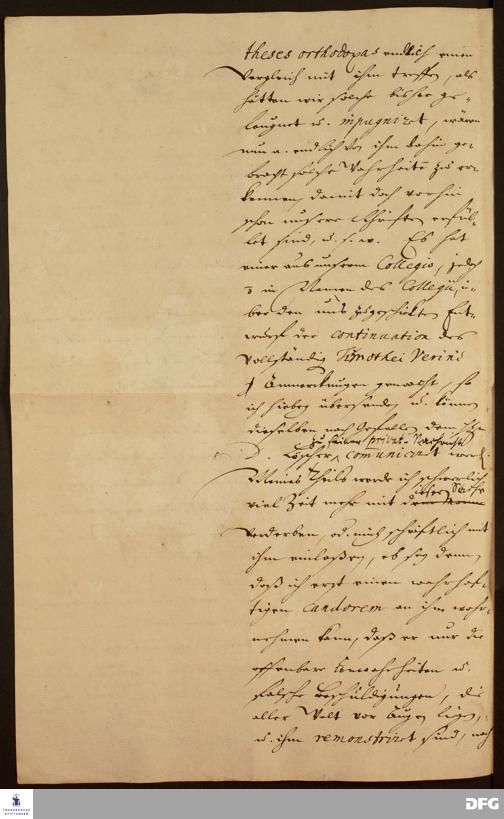 theses orthodoxas endlich einen
Vergleich mit ihm treffen, als
hätten wir solche bisher ge-
leugnet u. impugniret, wären
nun a. endlich von ihm dahin ge-
bracht solche Wahrheiten zu er-
kennen, damit doch vorhin
schon unsere Schriften erfül-
let sind, u. s. w. Es hat
einer aus unserm Collegio, jedoch
in Namen des Collegii, ü-
ber den uns zugeschickten Ent-
wurff der continuation des
vollständig Timothei Verini
Anmerckungen gemacht, so
ich hiebey übersende, u. können
dieselben nach Gefallen dem Hn
zu seiner privat-Nachricht
D. Löscher communiciret werd.
Meines Theils werde ich schwerlich
dieser Sache
viel Zeit mehr mit
verderben, od. mich schrifftlich mit
ihm einlaßen, es sey denn,
daß ich erst einen wahrhaf-
tigen candorem an ihm wahr-
nehmen kann, daß er nur die
offenbare Unwahrheiten u.
falsche Beschuldigungen, die
aller Welt vor Augen liegen,
u. ihm remonstriret sind, noch
FRANCKESCHE STIFTUNGEN
DFG